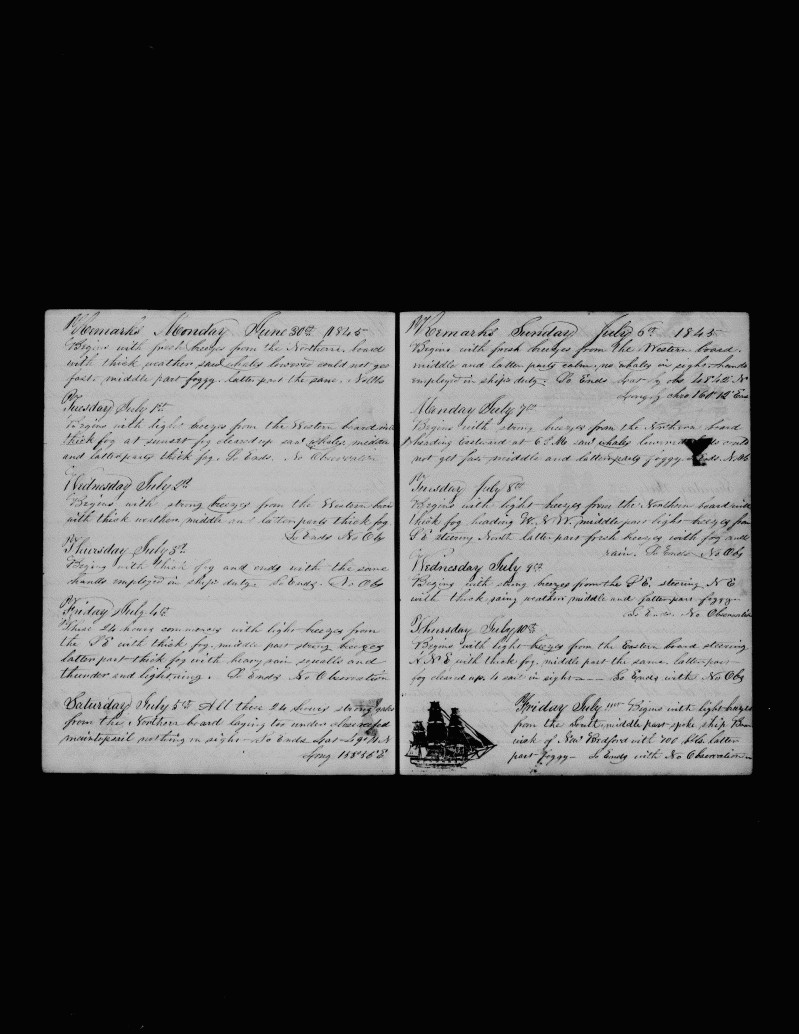 Remarks Monday June 30th 1845
Begins with fresh breezes from the Northern board
with thick weather saw whales lowered could not get
fast. middle part foggy. latter part the same. No Obs
Tuesday July 1st
Begins with light breezes from the Western board with
thick fog at sunset fog cleared up saw whales. middle
and latter parts thick fog. So Ends. No Observation
Wednesday July 2d
Begins with strong breezes from the Western
with thick weather. middle and latter parts thick fog
So Ends No Obs
Thursday July 3d
Begins with thick fog and ends with the same
hands employed in ships duty. So Ends. No Obs
Friday July 4th
These 24 hours commences with light breezes from
the S E with thick fog. middle part strong breezes
latter part thick fog with heavy rain squalls and
thunder and lightning. So Ends No Observation
Saturday July 5th All these 24 hours strong gales
from the Northern board laying too under close reefed
maintopsail nothing in sight So Ends Lat N
Long 158 56 E
Remarks Sunday July 6th 1845
Begins with fresh breezes from the Western board.
middle and latter parts calm. no whales in sight. hands
employed in ships duty. So Ends Lat by Obs 48 42 N
Long by chro 160 12 East
Monday July 7th
Begins with strong breezes from the Northern board
heading Eastward at 6 P.M. saw whales lowered could
not get fast middle and latter parts foggy So Ends. N. Obs
Tuesday July 8th
Begins with light breezes from the Northern board with
thick fog heading W. S. W. middle part light breezes from
S E steering North. latter part fresh breezes with fog and
rain. So Ends No Obs
Wednesday July 9th
Begins with strong breezes from the S E. steering N E
with thick rainy weather middle and latter part foggy
So Ends No Observation
Thursday July 10th
Begins with light breezes from the Eastern board steering
N. N. E with thick fog. middle part the same. latter part
fog cleared up. 4 sail in sight — So Ends with No Obs
Friday July 11th Begins with light breezes
from the South middle part spoke ship
of New Bedford with 700 bbls. latter
part foggy — So Ends with No Observation